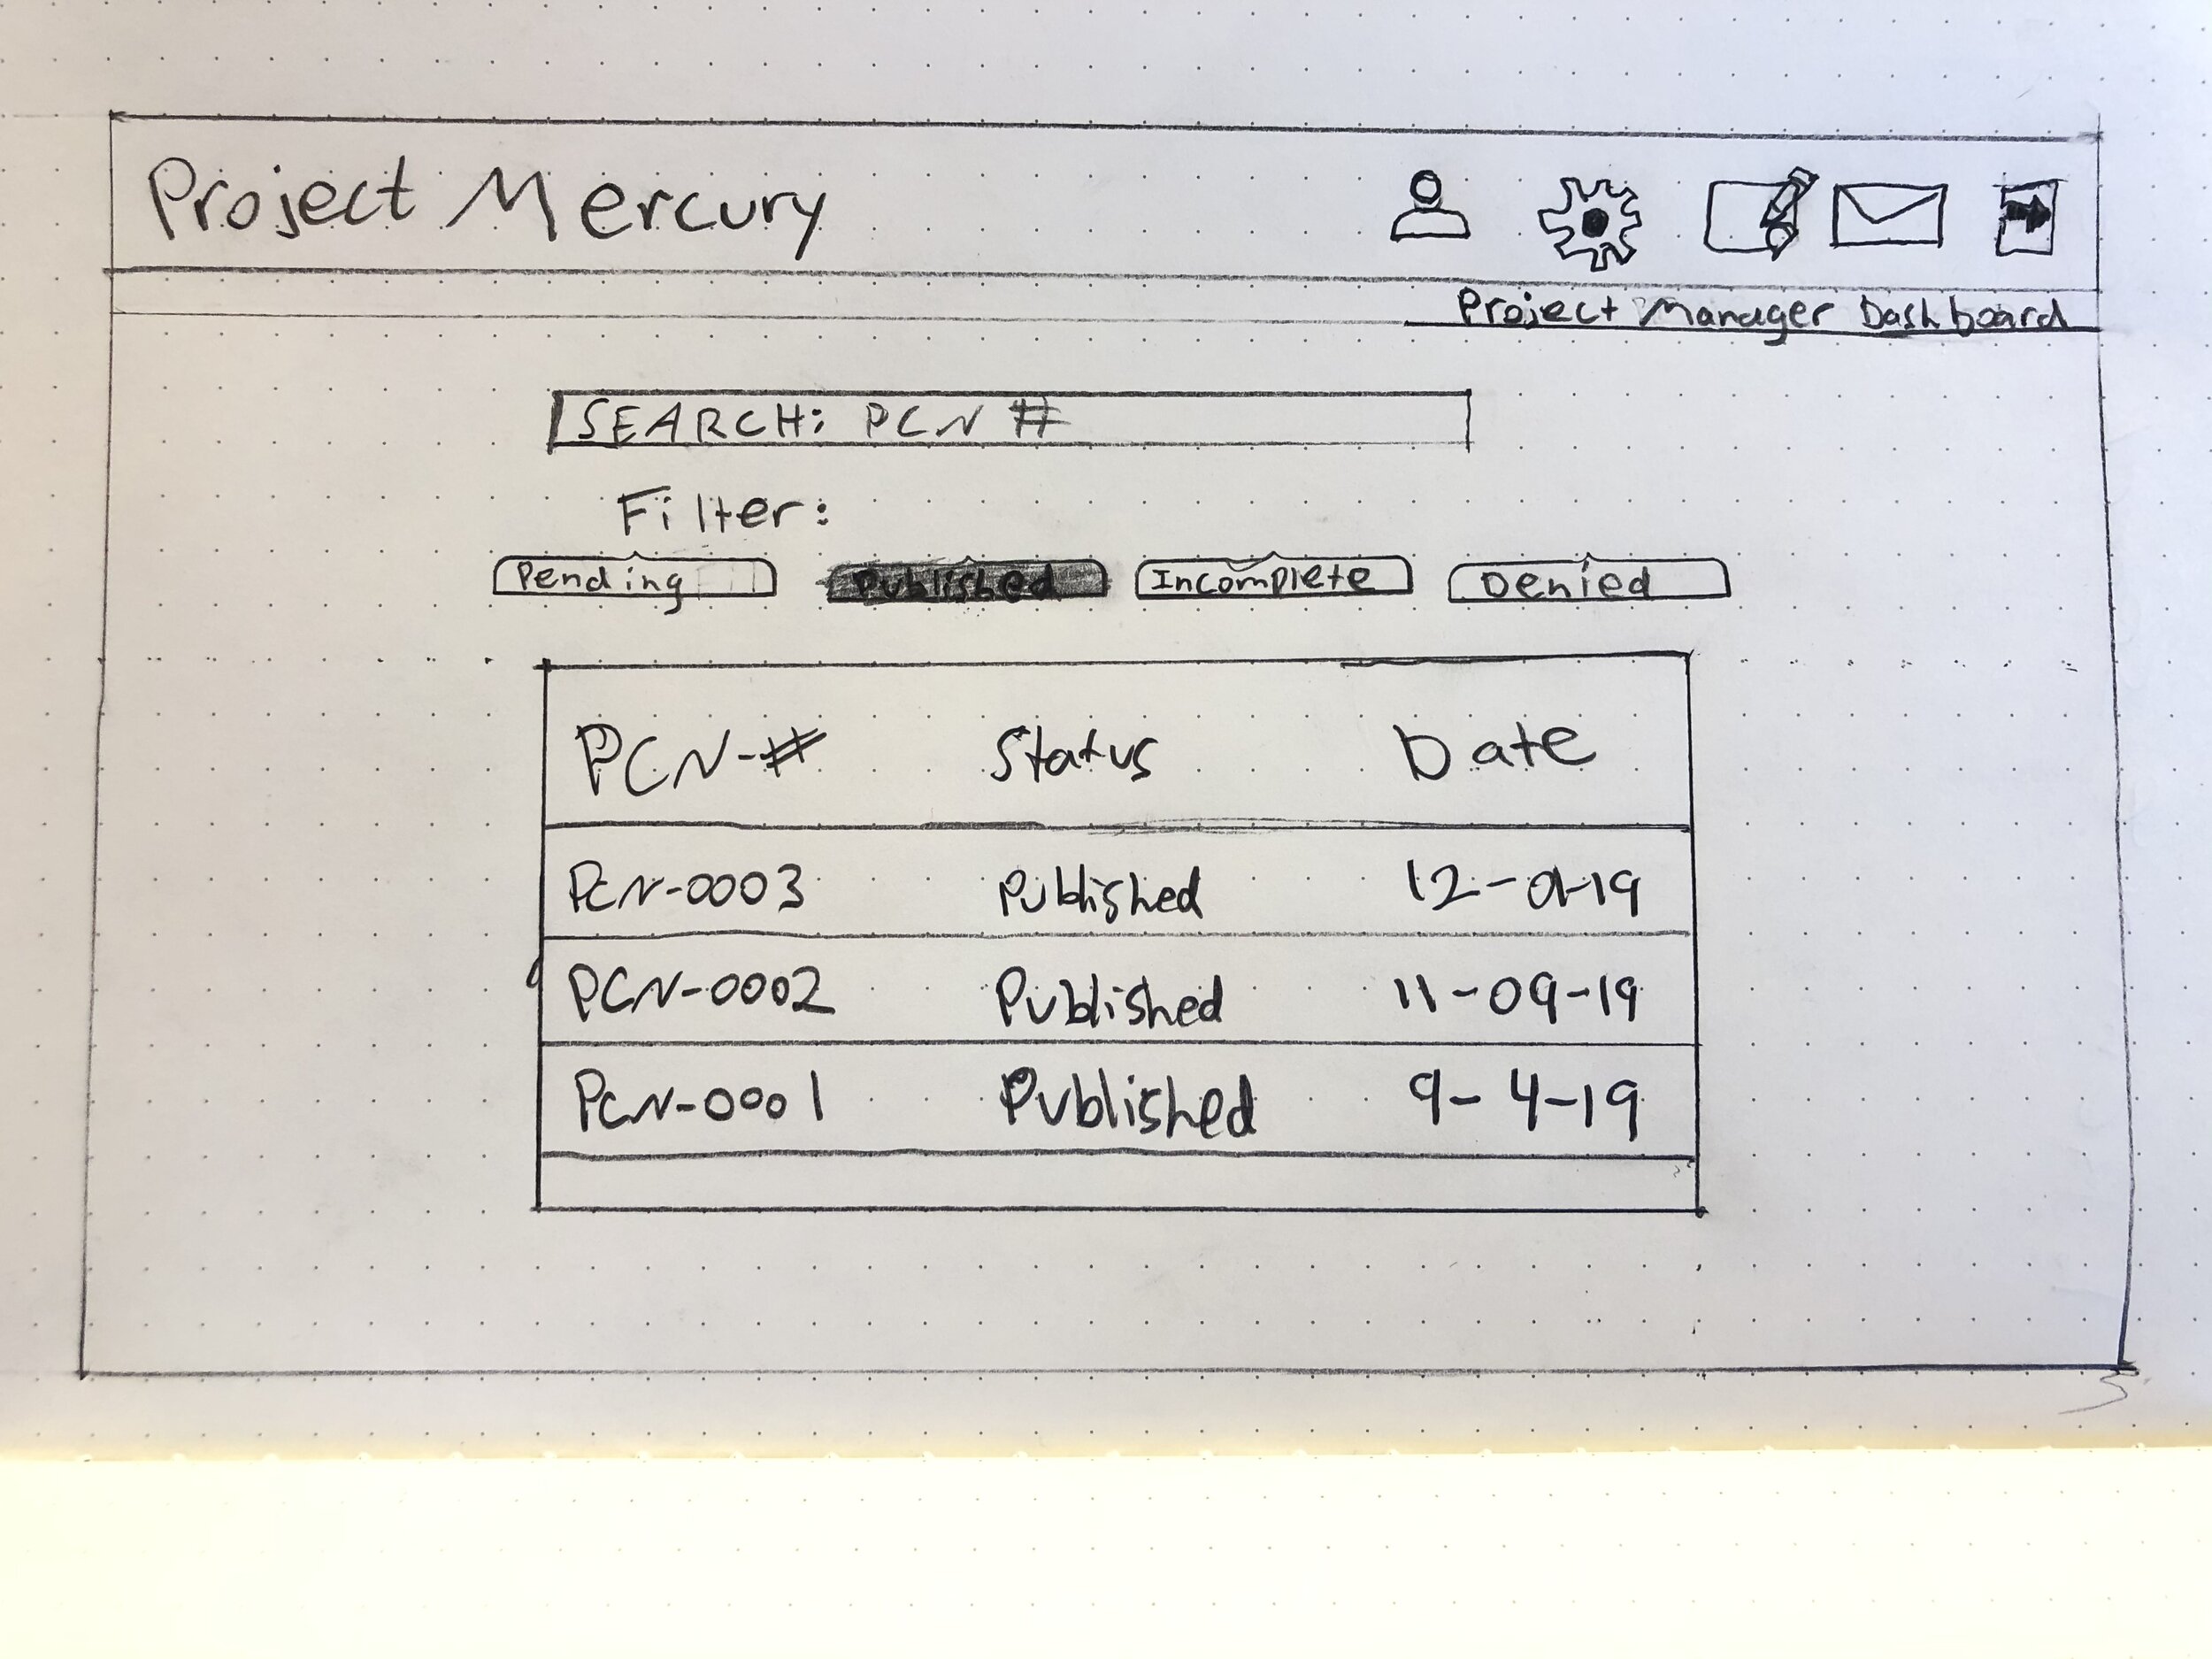 Project Mercury
Project Manager Dashboard
SEARCH: PCN #
Filter:
Pending Published Incomplete Denied
PCN-# Status Date
PCN-0003 Published 12-01-19
PCN-0002 Published 11-09-19
PCN-0001 Published 9-4-19